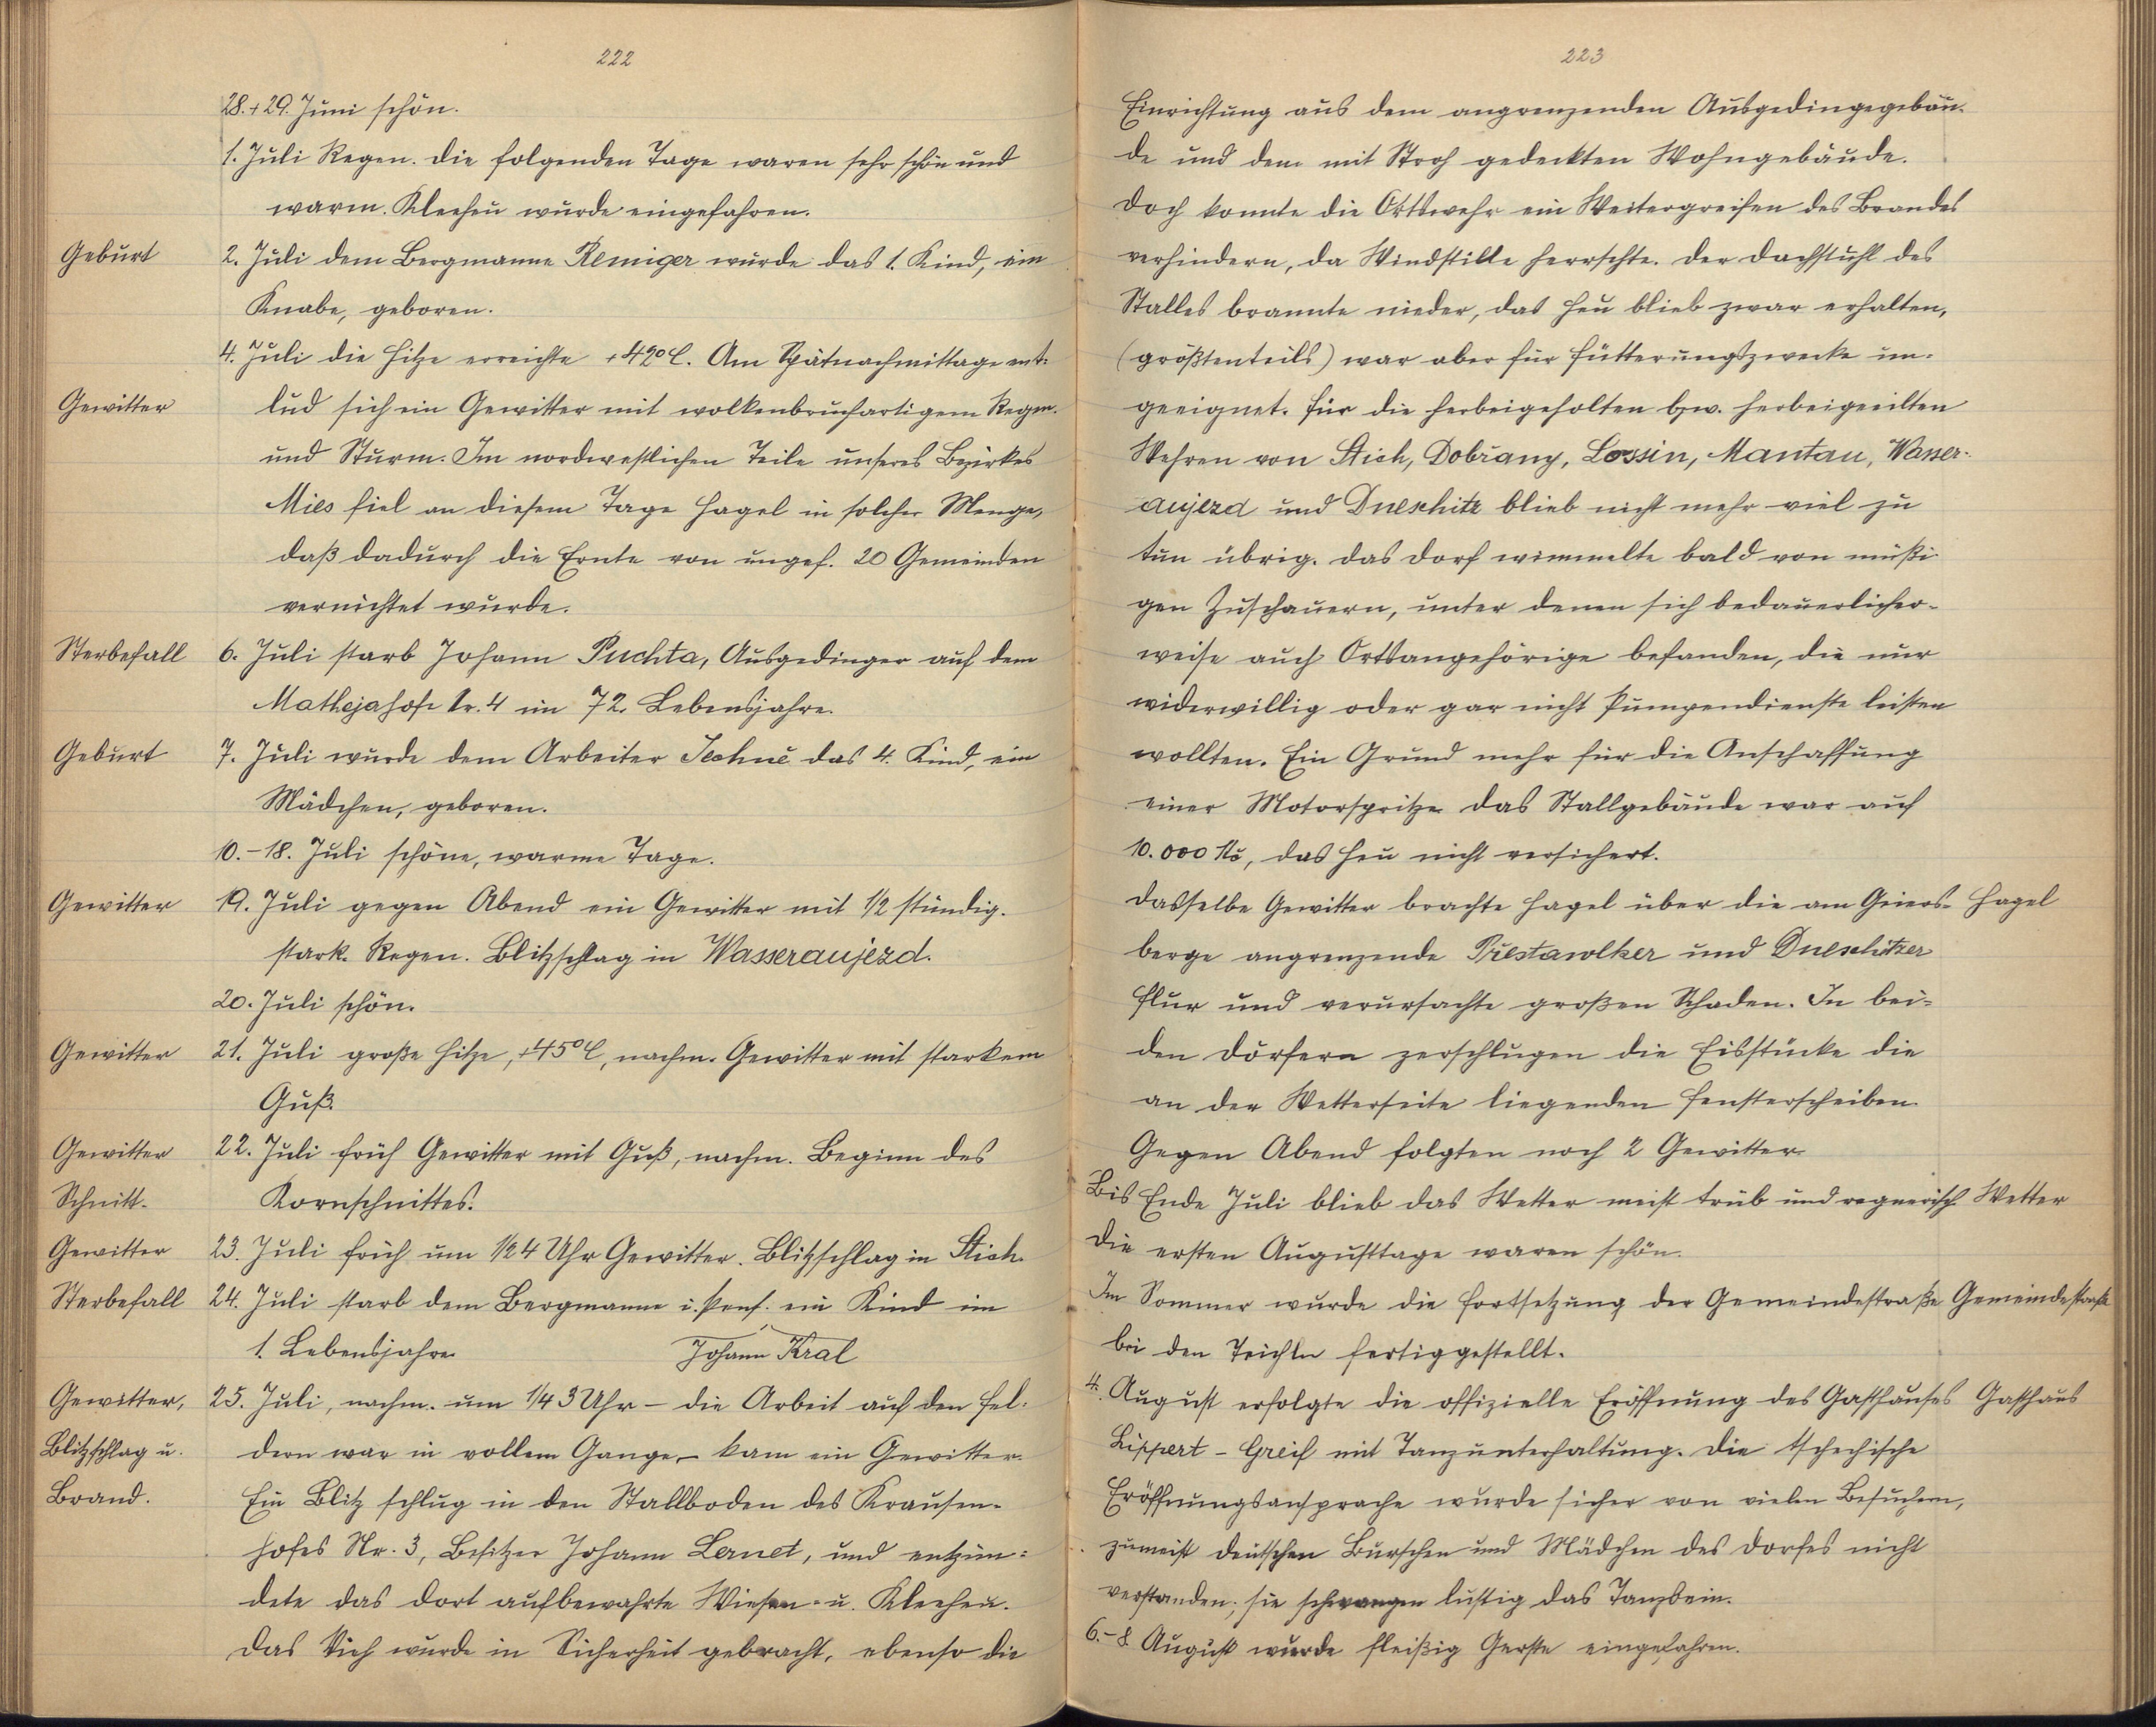 222
28.+29. Juni schön.
1. Juli Regen. Die folgenden Tage waren sehr schön und
warm. Kleeheu wurde eingefahren.
Geburt
2. Juli dem Bergmanne Remiger wurde das 1. Kind, ein
Knabe, geboren.
4. Juli die Hitze erreichte +42°C. Am Spätnachmittage ent-
Gewitter
lud sich ein Gewitter mit wolkenbruchartigem Regen
und Sturm. Im nordwestlichen Teile unseres Bezirkes
Mies fiel an diesem Tage Hagel in solcher Menge,
daß dadurch die Ernte von ungef. 20 Gemeinden
vernichtet wurde.
Sterbefall
6. Juli starb Johann Puchta, Ausgedinger auf dem
Mathejahofe Nr. 4 im 72. Lebensjahre.
Geburt
7. Juli wurde dem Arbeiter das 4. Kind, ein
Mädchen, geboren.
10.-18. Juli schöne, warme Tage.
Gewitter
19. Juli gegen Abend ein Gewitter mit 1/2 stündig.
stark. Regen. Blitzschlag in Wasseraujezd.
20. Juli schön.
Gewitter
21. Juli große Hitze, +45°C, nachm. Gewitter mit starkem
Guß.
Gewitter
22. Juli früh Gewitter mit Guß, nachm. Beginn des
Schnitt.
Kornschnittes.
Gewitter
23. Juli früh um 1/2 4 Uhr Gewitter. Blitzschlag in Stich.
Sterbefall
24. Juli starb dem Bergmanne i. Pens. ein Kind im
1. Lebensjahre
Johann Kral
Gewitter,
25. Juli, nachm. um 1/4 3 Uhr – die Arbeit auf den Fel-
Blitzschlag u.
dern war in vollem Gange – kam ein Gewitter.
Brand.
Ein Blitz schlug in den Stallboden des Krausen-
hofes Nr. 3, Besitzer Johann Lernet, und entzün-
dete das dort aufbewahrte Wiesen- u. Kleeheu.
Das Vieh wurde in Sicherheit gebracht, ebenso die
223
Einrichtung aus dem angrenzenden Ausgedingegebäu-
de und dem mit Stroh gedeckten Wohngebäude.
Doch konnte die Ortswehr ein Weitergreifen des Brandes
verhindern, da Windstille herrschte. Der Dachstuhl des
Stalles brannte nieder, das Heu blieb zwar erhalten,
(größtenteils) war aber für Fütterungszwecke un-
geeignet. Für die herbeigeholten bzw. herbeigeeilten
Wehren von Stich, Dobřany, Lossin, Mantau, Wasser-
aujezd und Dneschitz blieb nicht mehr viel zu
tun übrig. Das Dorf wimmelte bald von müßi
gen Zuschauern, unter denen sich bedauerlicher-
weise auch Ortsangehörige befanden, die nur
widerwillig oder gar nicht Pumpendienste leisten
wollten. Ein Grund mehr für die Anschaffung
einer Motorspritze. Das Stallgebäude war auf
10.000 Kč, das Heu nicht versichert.
Dasselbe Gewitter brachte Hagel über die am Geiers-
Hagel
berge angrenzende Přestawlker und Dneschitzer
Flur und verursachte großen Schaden. In bei-
den Dörfern zerschlugen die Eisstücke die
an der Wetterseite liegenden Fensterscheiben.
Gegen Abend folgten noch 2 Gewitter.
Bis Ende Juli blieb das Wetter meist trüb und regnerisch
Wetter
Die ersten Augusttage waren schön.
Im Sommer wurde die Fortsetzung der Gemeindestraße
Gemeindestraße
bei den Teichln fertiggestellt.
4. August erfolgte die offizielle Eröffnung des Gasthauses
Gasthaus
Lippert – Greif mit Tanzunterhaltung. Die tschechische
Eröffnungsansprache wurde sicher von vielen Besuchern,
zumeist deutschen Burschen und Mädchen des Dorfes nicht
verstanden; sie schwangen lustig das Tanzbein.
6.-8. August wurde fleißig Gerste eingefahren.